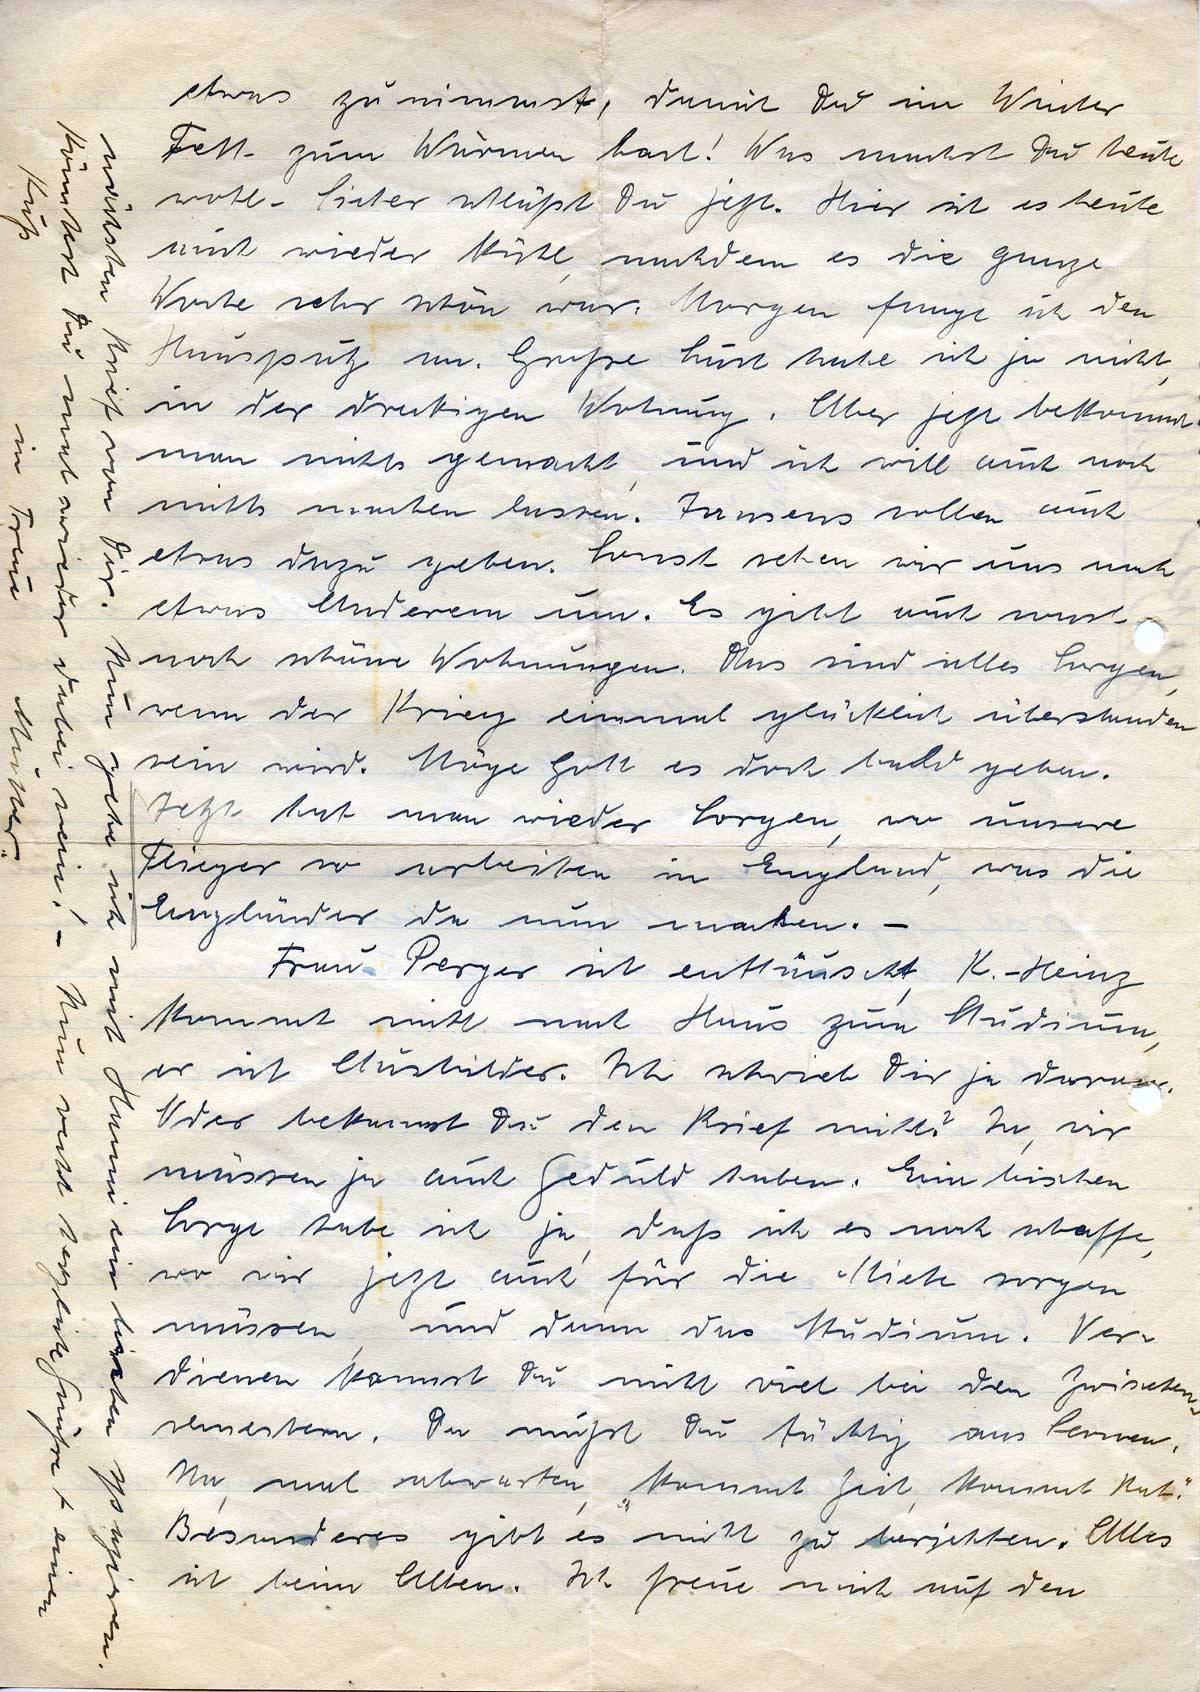 etwas zunimmst, damit Du im Winter
Fett zum Wärmen hast! Was machst Du heute
wohl. Sicher schläfst Du jetzt. Hier ist es heute
auch wieder kühl, nachdem es die ganze
Woche sehr schön war. Morgen fange ich den
Hausputz an. Große Lust habe ich ja nicht,
in der dreckigen Wohnung. Aber jetzt bekommt
man nichts gemacht, und ich will auch noch
nichts machen lassen. Jansens sollen auch
etwas dazu geben. Sonst sehen wir uns nach
etwas Anderem um. Es gibt auch sonst
noch schöne Wohnungen. Das sind alles Sorgen,
wenn der Krieg einmal glücklich überstanden
sein wird. Möge Gott es doch bald geben.
Jetzt hat man wieder Sorgen, wo unsere
Flieger so arbeiten in England, was die
Engländer da nun machen. –
Frau Perger ist enttäuscht, K.-Heinz
kommt nicht nach Haus zum Studium,
er ist Ausbilder. Ich schrieb Dir ja darum.
Oder bekamst Du den Brief nicht? Ja, wir
müssen ja auch Geduld haben. Ein bischen
Sorge habe ich ja, daß ich es noch schaffe,
wo wir jetzt auch für die Miete sorgen
müssen, und dann das Studium. Ver-
dienen kannst Du nicht viel bei den Zwischen-
semestern. Da mußt Du tüchtig ans Lernen.
Na, mal abwarten, "kommt Zeit, kommt Rat."
Besonderes gibt es nicht zu berichten. Alles
ist beim Alten. Ich freue mich auf den
nächsten Brief von Dir. Nun gehe ich mit Hanni ein bischen spazieren.
Könntest Du mal wieder dabei sein! – Nun recht herzliche Grüße + einen
Kuß in Treue Mutter.